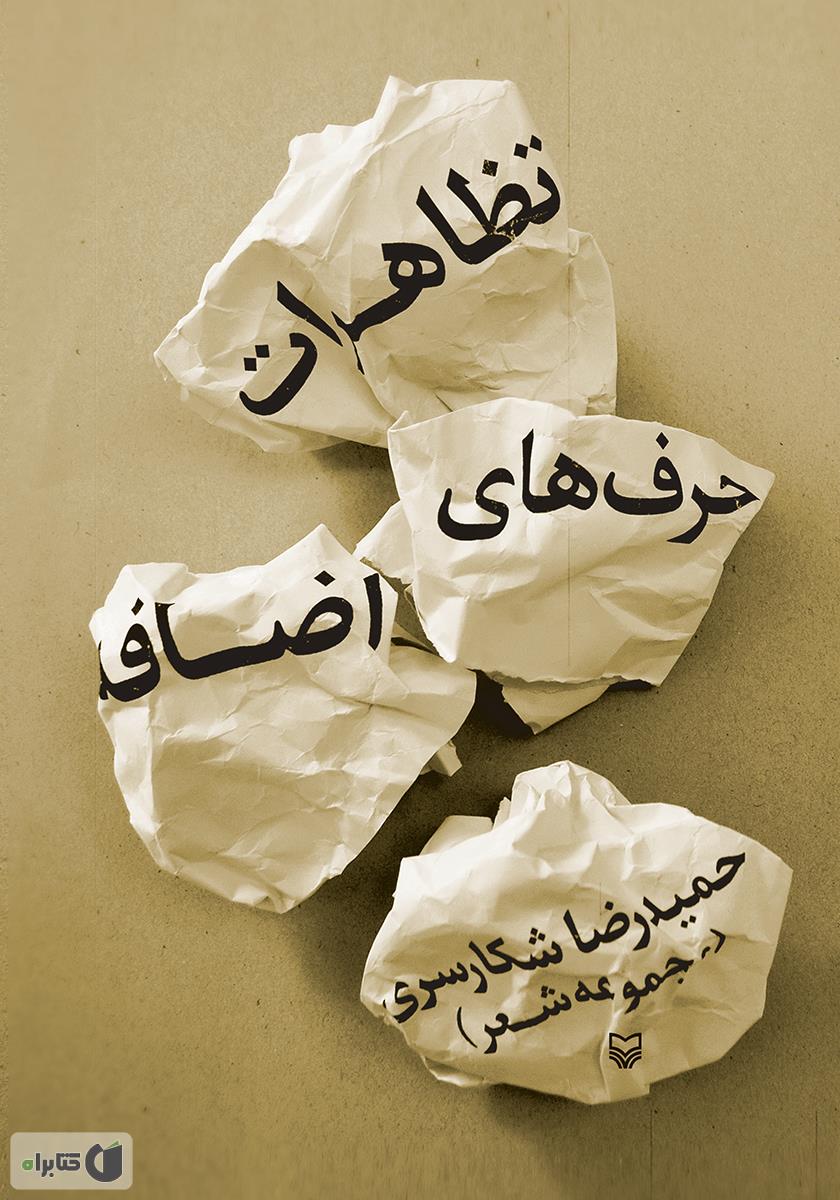 تظاهرات
حرف‌های
اضافه
حمیدرضا شکارسری
(مجموعه شعر)
کتابراه